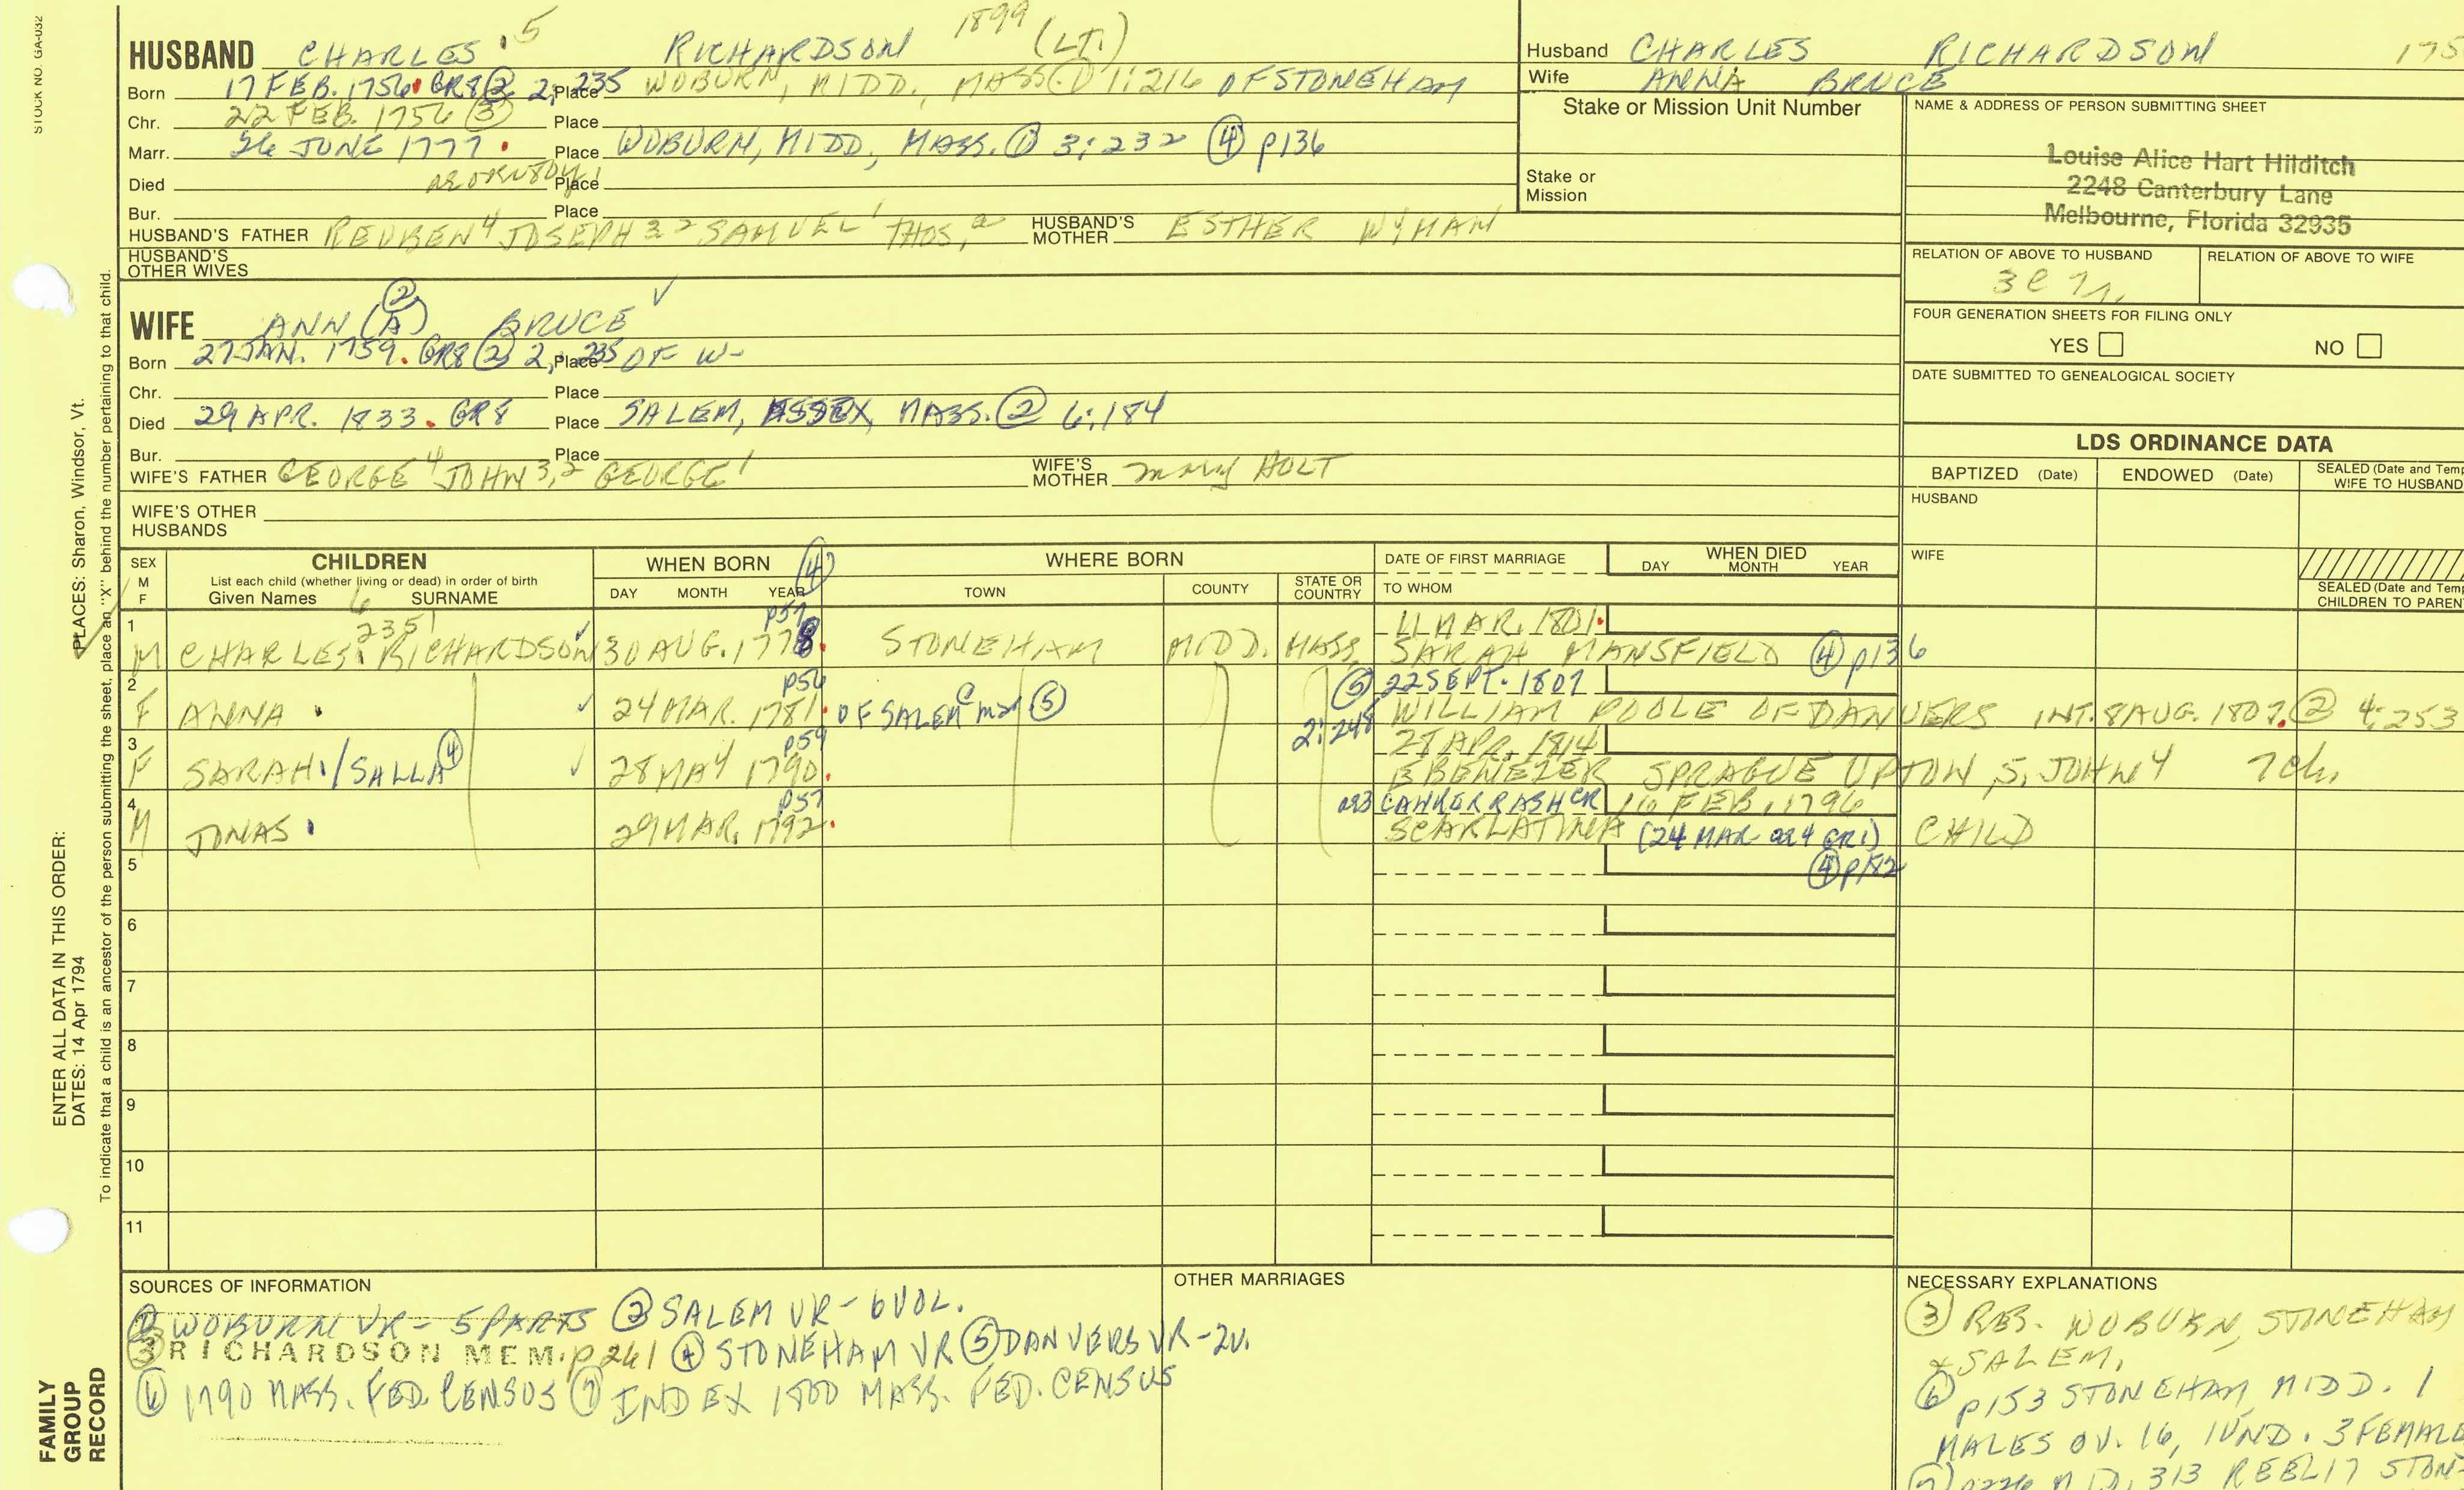 STOCK NO. GA-032
HUSBAND CHARLES 5 RICHARDSON 1899 (LT.)
Born 17 FEB. 1756 GR8 ② 2, 235 Place WOBURN, MIDD., MASS. ① 1:216 OF STONEHAM
Chr. 22 FEB. 1756 ③ Place
Marr. 26 JUNE 1777 Place WOBURN, MIDD, MASS. ① 3:232 ④ p136
Died Place
Bur. Place
HUSBAND'S FATHER REUBEN 4 JOSEPH 3 2 SAMUEL 1 THOS, HUSBAND'S MOTHER ESTHER WYMAN
HUSBAND'S OTHER WIVES
WIFE ANN(A) ② BRUCE ✓
Born 27 JAN. 1759. GR8 ② 2, 235 Place OF W-
Chr. Place
Died 29 APR. 1833. GR8 Place SALEM, ESSEX, MASS. ② 6:184
Bur. Place
WIFE'S FATHER GEORGE 4 JOHN 3,2 GEORGE 1 WIFE'S MOTHER mary HOLT
WIFE'S OTHER HUSBANDS
Husband CHARLES RICHARDSON 175
Wife ANNA BRUCE
Stake or Mission Unit Number
Stake or Mission
NAME & ADDRESS OF PERSON SUBMITTING SHEET
Louise Alice Hart Hilditch
2248 Canterbury Lane
Melbourne, Florida 32935
RELATION OF ABOVE TO HUSBAND RELATION OF ABOVE TO WIFE
FOUR GENERATION SHEETS FOR FILING ONLY
YES NO
DATE SUBMITTED TO GENEALOGICAL SOCIETY
LDS ORDINANCE DATA
BAPTIZED (Date) ENDOWED (Date) SEALED (Date and Temp
WIFE TO HUSBAND
HUSBAND
WIFE
SEALED (Date and Temp
CHILDREN TO PAREN
SEX M F
CHILDREN
List each child (whether living or dead) in order of birth
Given Names 6 SURNAME
WHEN BORN ④
DAY MONTH YEAR
WHERE BORN
TOWN COUNTY STATE OR COUNTRY
DATE OF FIRST MARRIAGE
TO WHOM
WHEN DIED
DAY MONTH YEAR
1 2351 p57 11 MAR. 1801.
M CHARLES RICHARDSON ✓ 30 AUG. 1778. STONEHAM MIDD. MASS. SARAH MANSFIELD ④ p136
2 p56 ⑤ 22 SEPT. 1807
F ANNA ✓ 24 MAR. 1781. OF SALEM ⑤ 2:248 WILLIAM POOLE OF DANVERS INT. 8 AUG. 1807. ② 4:253
3 p59 28 APR. 1814
F SARAH/SALLA ④ ✓ 28 MAY 1790. EBENEZER SPRAGUE UPTON, S. JOHN 4 7 ch.
4 p57 CANKER RASH CR1 16 FEB. 1796
M JONAS 29 MAR. 1792. SCARLATINA (24 MAR ae 4 GR1) CHILD
5 ④ p142
6
7
8
9
10
11
SOURCES OF INFORMATION
① WOBURN VR - 5 PARTS ② SALEM VR - 6 VOL.
③ RICHARDSON MEM. p 261 ④ STONEHAM VR ⑤ DANVERS VR - 2V.
⑥ 1790 MASS. FED. CENSUS ⑦ INDEX 1800 MASS. FED. CENSUS
OTHER MARRIAGES
NECESSARY EXPLANATIONS
③ RES. WOBURN, STONEHAM
& SALEM.
⑥ p153 STONEHAM, MIDD. 1
MALES OV. 16, 1 UND. 3 FEMALE
313 REEL 17 STON-
ENTER ALL DATA IN THIS ORDER:
DATES: 14 Apr 1794
PLACES: Sharon, Windsor, Vt.
To indicate that a child is an ancestor of the person submitting the sheet, place an "X" behind the number pertaining to that child.
FAMILY
GROUP
RECORD